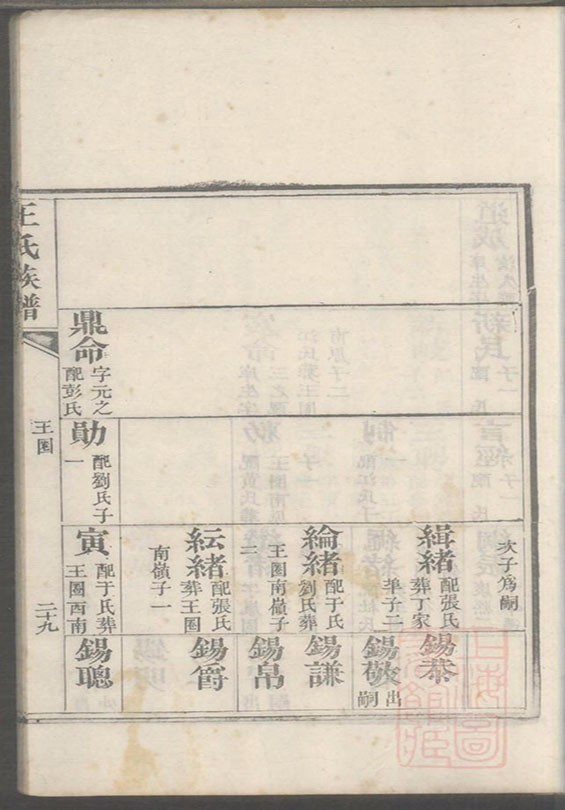 次子爲嗣
緝緒 配張氏
葬丁家
子二
錫恭
錫敬 出
嗣
綸緒 配于氏
劉氏葬
王圈南嶺子
二
錫謙
錫帛
紜緒 配張氏
葬王圈
南嶺子一
錫爵
鼎命 字元之
配彭氏
勛 配劉氏子
一
寅 配于氏葬
王圈西南
錫聰
王氏族譜
王圈
二十九